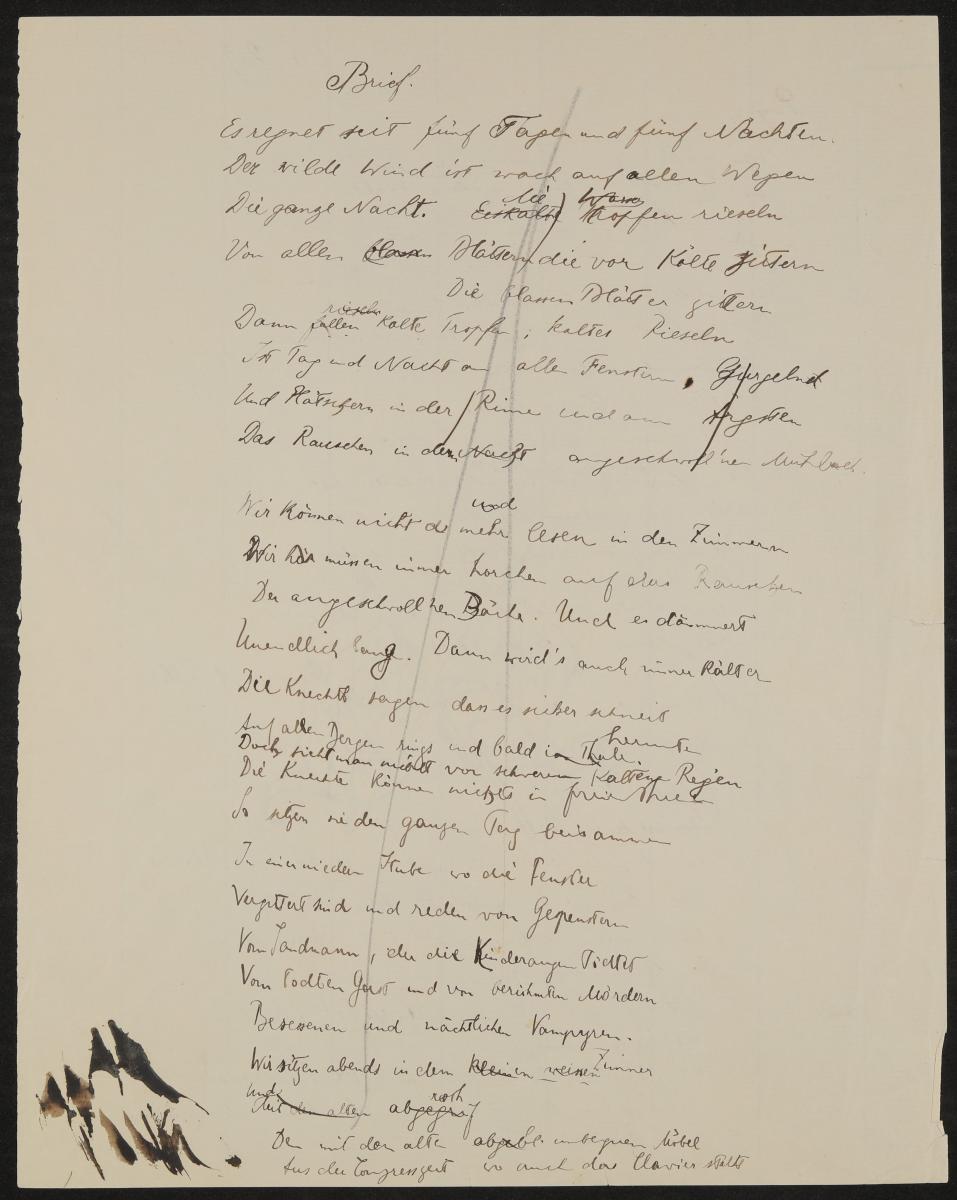 Brief.
Es regnet seit fünf Tagen und fünf Nachten.
Der wilde Wind ist wach auf allen Wegen
Die
Die ganze Nacht. Eiskalte Tropfen rieseln
Von allen blassen Blättern, die vor Kälte zittern
Die blassen Blätter zittern
rieseln
Dann fallen kalte Tropfen, kaltes Rieseln
Ist Tag und Nacht an allen Fenstern. Gurgelnd
Und Plätschern in der Rinne und am Ärgsten
Das Rauschen in dem Nacht angeschwoll'nen Mühlbach.
und
Wir können nicht mehr lesen in den Zimmern
Wir müssen immer horchen auf das Rauschen
Der angeschwoll'nen Bäche. Und es dämmert
Unendlich lang. Dann wird's auch immer kälter
Die Knechte sagen dass es sicher schneit
herunten
Auf allen Bergen rings und bald im Thale.
Doch sieht man nicht vor schwerem kalten Regen
Die Knechte können nichts im freien thuen
So sitzen sie den ganzen Tag beisammen
In einer niedern Stube wo die Fenster
Vergittert sind und reden von Gespenstern
Vom Sandmann, der die Kinderaugen tödtet
Vom todten Gast und von berühmten Mördern
Besessenen und nächtlichen Vampyren.
Wir sitzen abends in dem kleinen weissen Zimmer
und roth
Mit den alten abgegrif
Den mit den alten unbequem Möbel
Aus der Congresszeit wo auch das Clavier steht